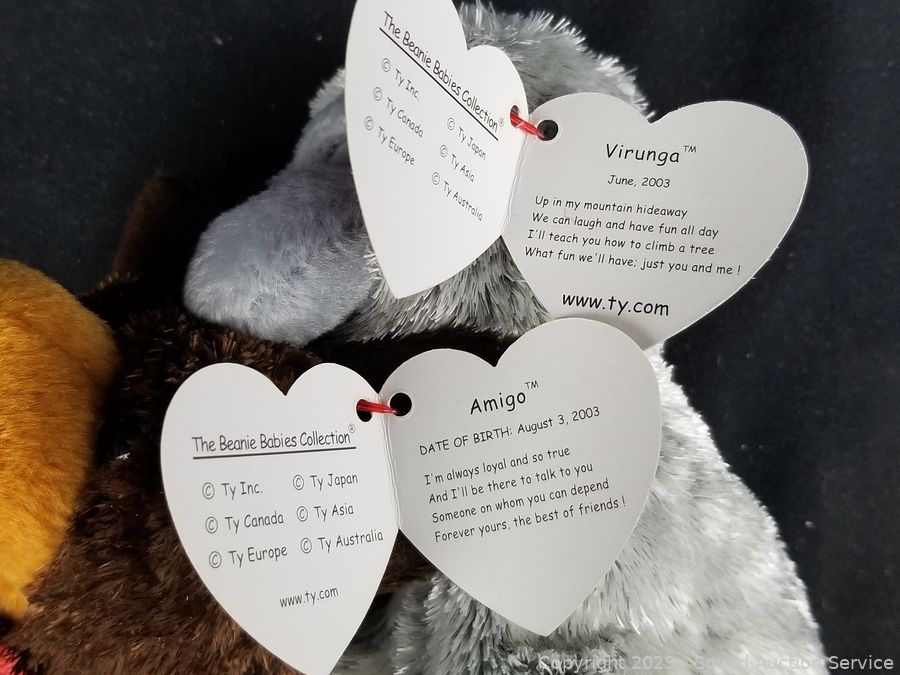 The Beanie Babies Collection®
© Ty Inc.
© Ty Canada
© Ty Europe
© Ty Japan
© Ty Asia
© Ty Australia
Virunga™
June, 2003
Up in my mountain hideaway
We can laugh and have fun all day
I'll teach you how to climb a tree
What fun we'll have; just you and me !
www.ty.com
The Beanie Babies Collection®
© Ty Inc. © Ty Japan
© Ty Canada © Ty Asia
© Ty Europe © Ty Australia
www.ty.com
Amigo™
DATE OF BIRTH: August 3, 2003
I'm always loyal and so true
And I'll be there to talk to you
Someone on whom you can depend
Forever yours, the best of friends !
Copyright 2023 Sound Auction Service